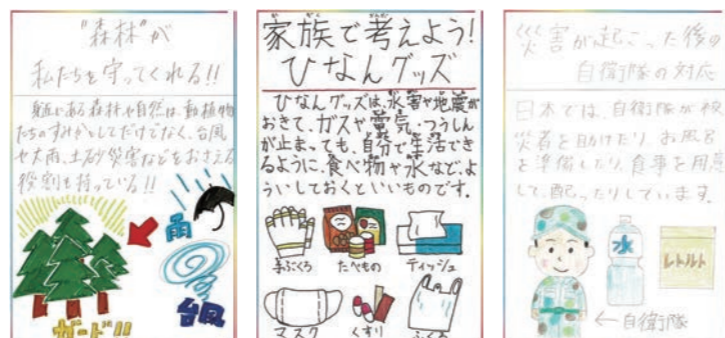 "森林"が
私たちを守ってくれる!!
身近にある森林や自然は、動植物
たちのすみかとしてだけでなく、台風
や大雨、土砂災害などをおさえる
役割も持っている!!
雨
台風
ガード!!
家族で考えよう!
ひなんグッズ
ひなんグッズは、水害や地震が
おきて、ガスや電気・つうしん
が止まっても、自分で生活でき
るように、食べ物や水など、よ
ういしておくといいものです。
手ぶくろ
たべもの
ティッシュ
マスク
くすり
ふくろ
災害が起こった後の
自衛隊の対応
日本では、自衛隊が被
災者を助けたり、お風呂
を準備したり、食事を用意
して、配ったりしています。
水
レトルト
←自衛隊